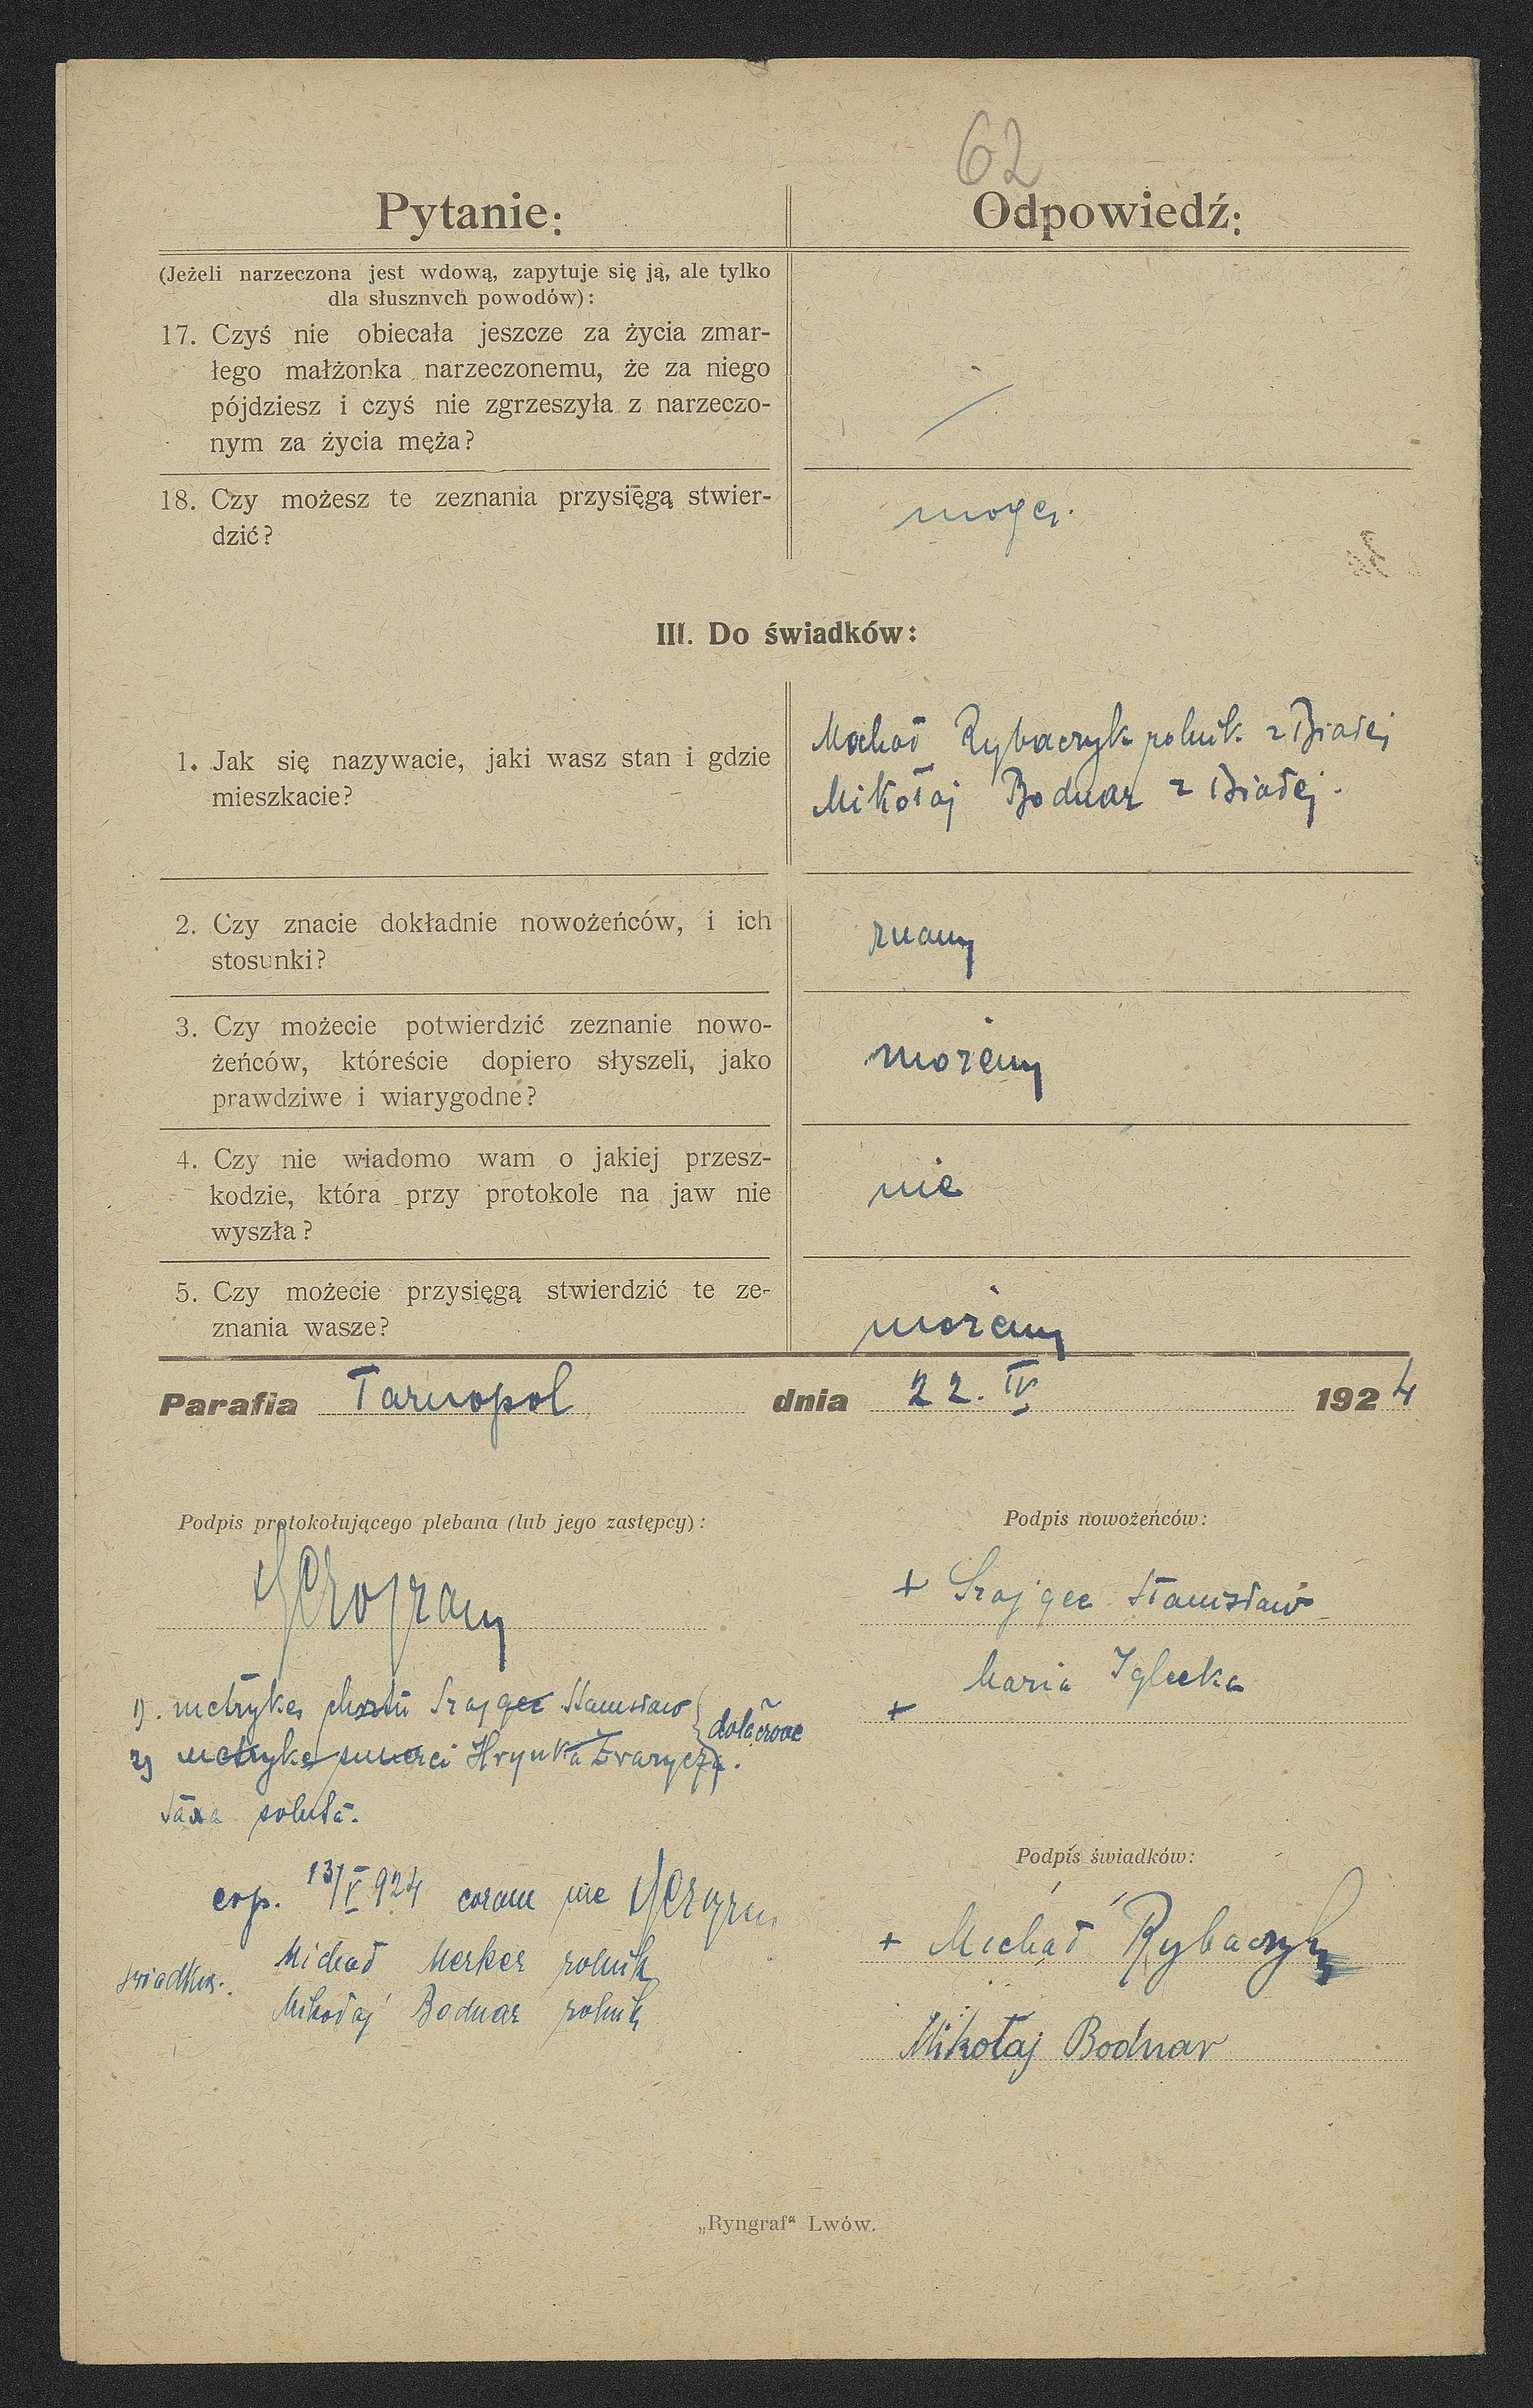 62
Pytanie:
Odpowiedź:
(Jeżeli narzeczona jest wdową, zapytuje się ją, ale tylko
dla słusznych powodów):
17. Czyś nie obiecała jeszcze za życia zmar-
łego małżonka narzeczonemu, że za niego
pójdziesz i czyś nie zgrzeszyła z narzeczo-
nym za życia męża?
18. Czy możesz te zeznania przysięgą stwier-
dzić?
mogę.
III. Do świadków:
1. Jak się nazywacie, jaki wasz stan i gdzie
mieszkacie?
Michał Rybaczyk rolnik z Białej
Mikołaj Bodnar z Białej.
2. Czy znacie dokładnie nowożeńców, i ich
stosunki?
znamy
3. Czy możecie potwierdzić zeznanie nowo-
żeńców, któreście dopiero słyszeli, jako
prawdziwe i wiarygodne?
możemy
4. Czy nie wiadomo wam o jakiej przesz-
kodzie, która przy protokole na jaw nie
wyszła?
nie
5. Czy możecie przysięgą stwierdzić te ze-
znania wasze?
możemy
Parafia Tarnopol dnia 22. IV 1924
Podpis protokołującego plebana (lub jego zastępcy):
Podpis nowożeńców:
+ Szajgec Stanisław
Maria Iglecka
+
1). metrykę chrztu Szajgec Stanisław
2) metrykę śmierci Hryńka Zwarycza.
dołączone
taxa soluta.
cop. 13/V 924 coram me
świadkowie: Michał Merker rolnik
Mikołaj Bodnar rolnik
Podpis świadków:
+ Michał Rybaczyk
Mikołaj Bodnar
„Ryngraf“ Lwów.